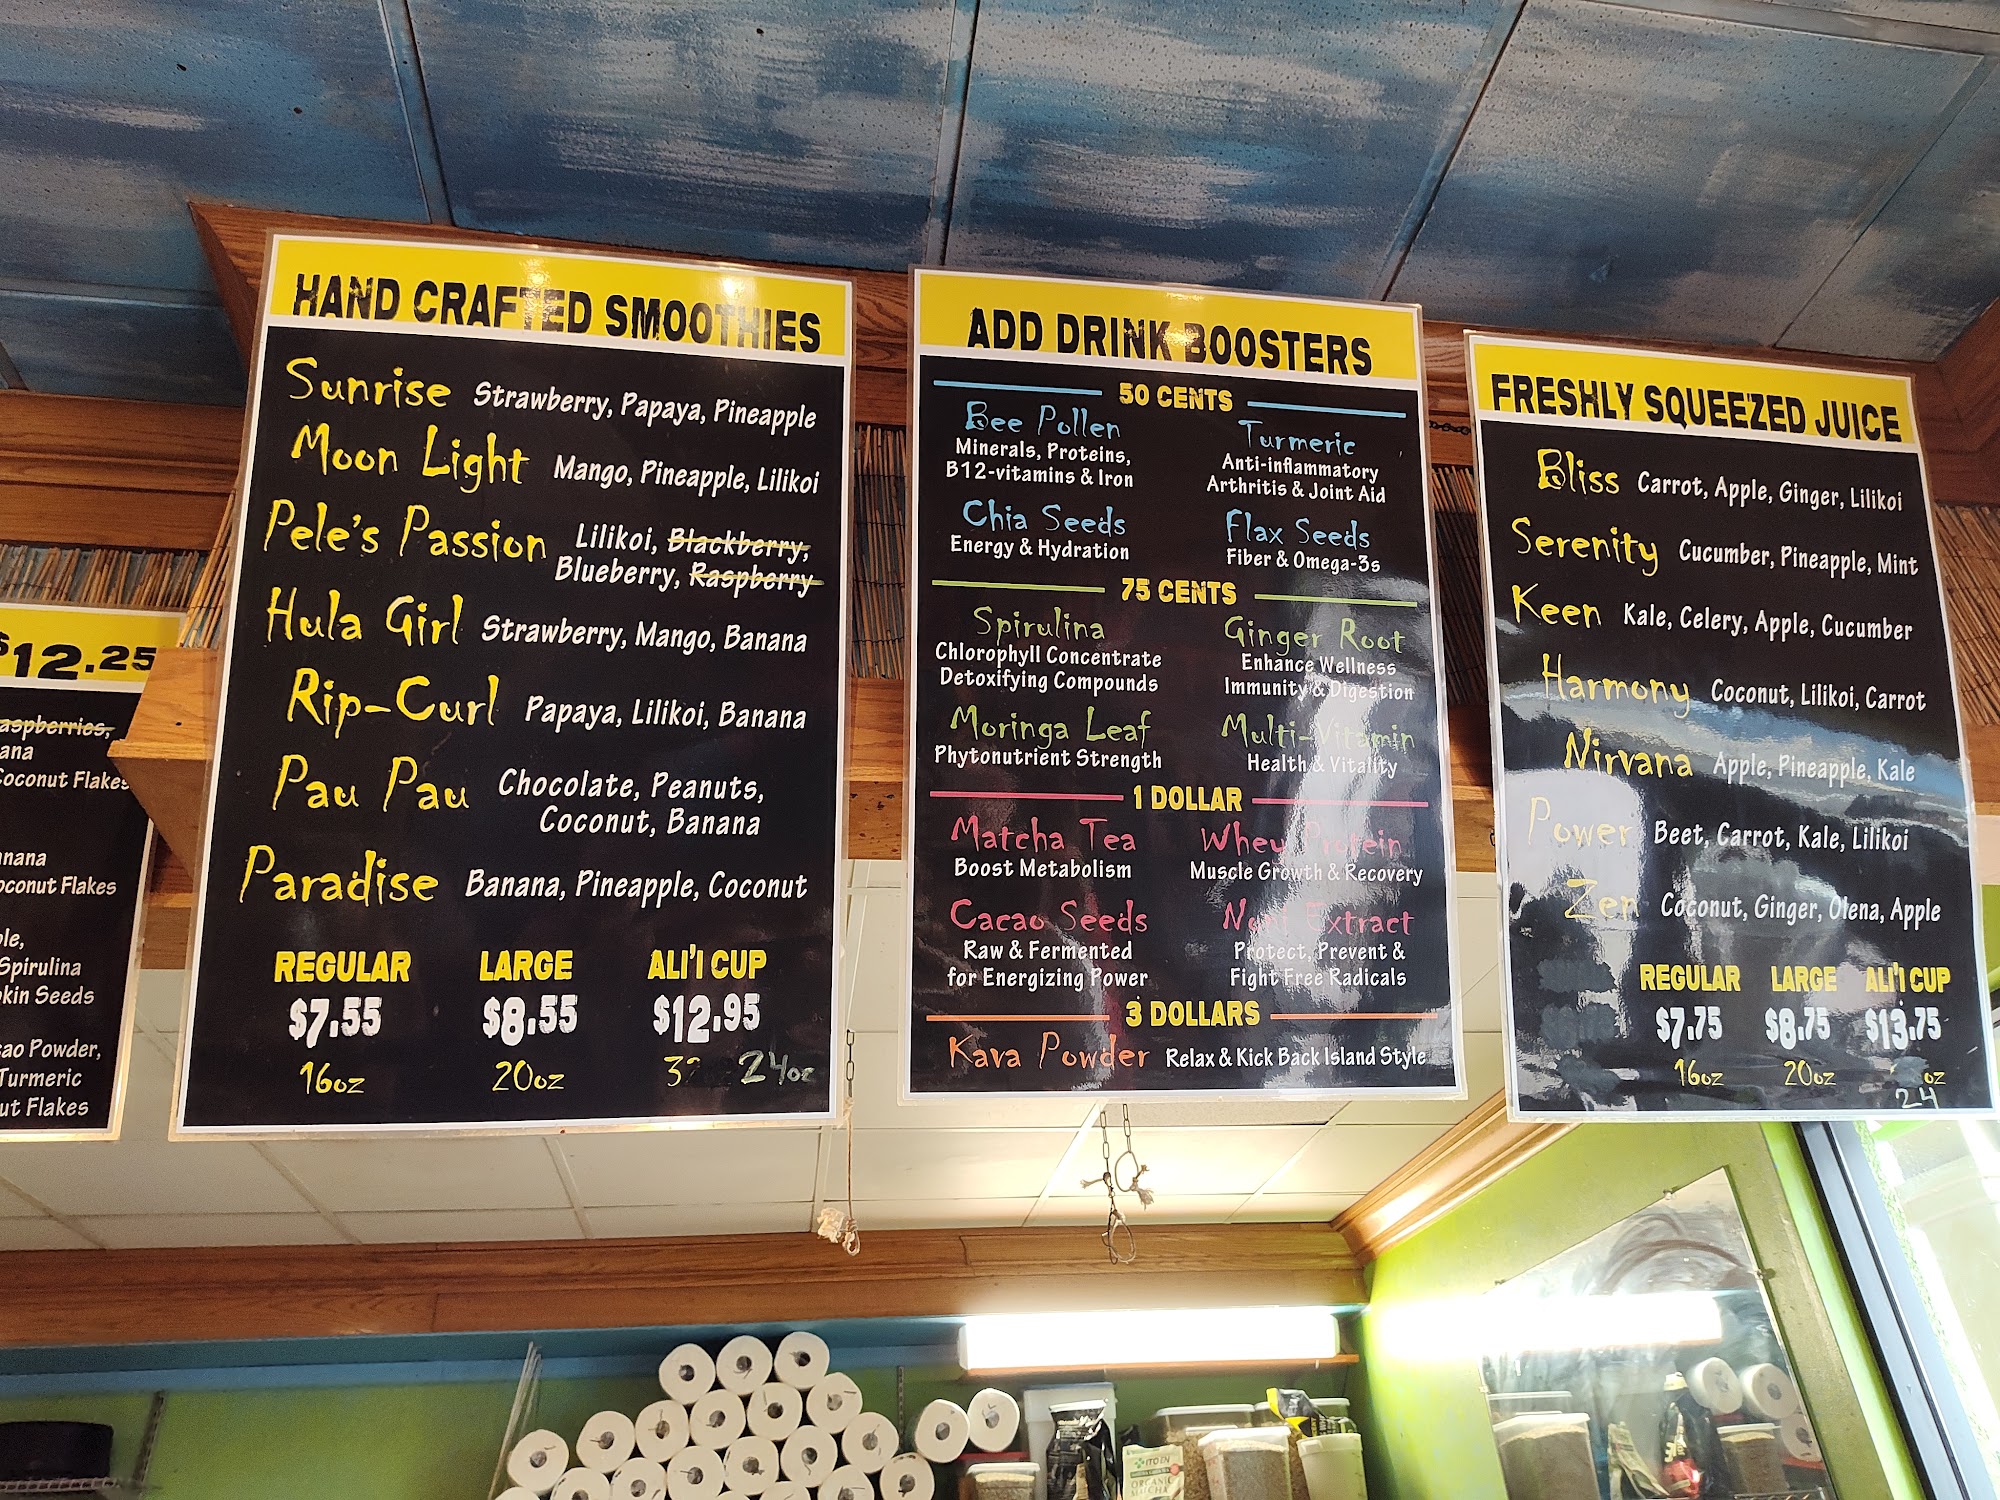 $12.25
aspberries,
ana
Coconut Flakes
nana
oconut Flakes
ple,
Spirulina
pkin Seeds
cao Powder,
Turmeric
ut Flakes
HAND CRAFTED SMOOTHIES
Sunrise Strawberry, Papaya, Pineapple
Moon Light Mango, Pineapple, Lilikoi
Pele's Passion Lilikoi, Blackberry,
Blueberry, Raspberry
Hula Girl Strawberry, Mango, Banana
Rip-Curl Papaya, Lilikoi, Banana
Pau Pau Chocolate, Peanuts,
Coconut, Banana
Paradise Banana, Pineapple, Coconut
REGULAR LARGE ALI'I CUP
$7.55 $8.55 $12.95
16oz 20oz 32 24oz
ADD DRINK BOOSTERS
50 CENTS
Bee Pollen
Minerals, Proteins,
B12-vitamins & Iron
Turmeric
Anti-inflammatory
Arthritis & Joint Aid
Chia Seeds
Energy & Hydration
Flax Seeds
Fiber & Omega-3s
75 CENTS
Spirulina
Chlorophyll Concentrate
Detoxifying Compounds
Ginger Root
Enhance Wellness
Immunity & Digestion
Moringa Leaf
Phytonutrient Strength
Multi-Vitamin
Health & Vitality
1 DOLLAR
Matcha Tea
Boost Metabolism
Whey Protein
Muscle Growth & Recovery
Cacao Seeds
Raw & Fermented
for Energizing Power
Noni Extract
Protect, Prevent &
Fight Free Radicals
3 DOLLARS
Kava Powder Relax & Kick Back Island Style
FRESHLY SQUEEZED JUICE
Bliss Carrot, Apple, Ginger, Lilikoi
Serenity Cucumber, Pineapple, Mint
Keen Kale, Celery, Apple, Cucumber
Harmony Coconut, Lilikoi, Carrot
Nirvana Apple, Pineapple, Kale
Power Beet, Carrot, Kale, Lilikoi
Zen Coconut, Ginger, Olena, Apple
REGULAR LARGE ALI'I CUP
$7.75 $8.75 $13.75
16oz 20oz oz
24
ITO EN
ORGANIC
MATCHA